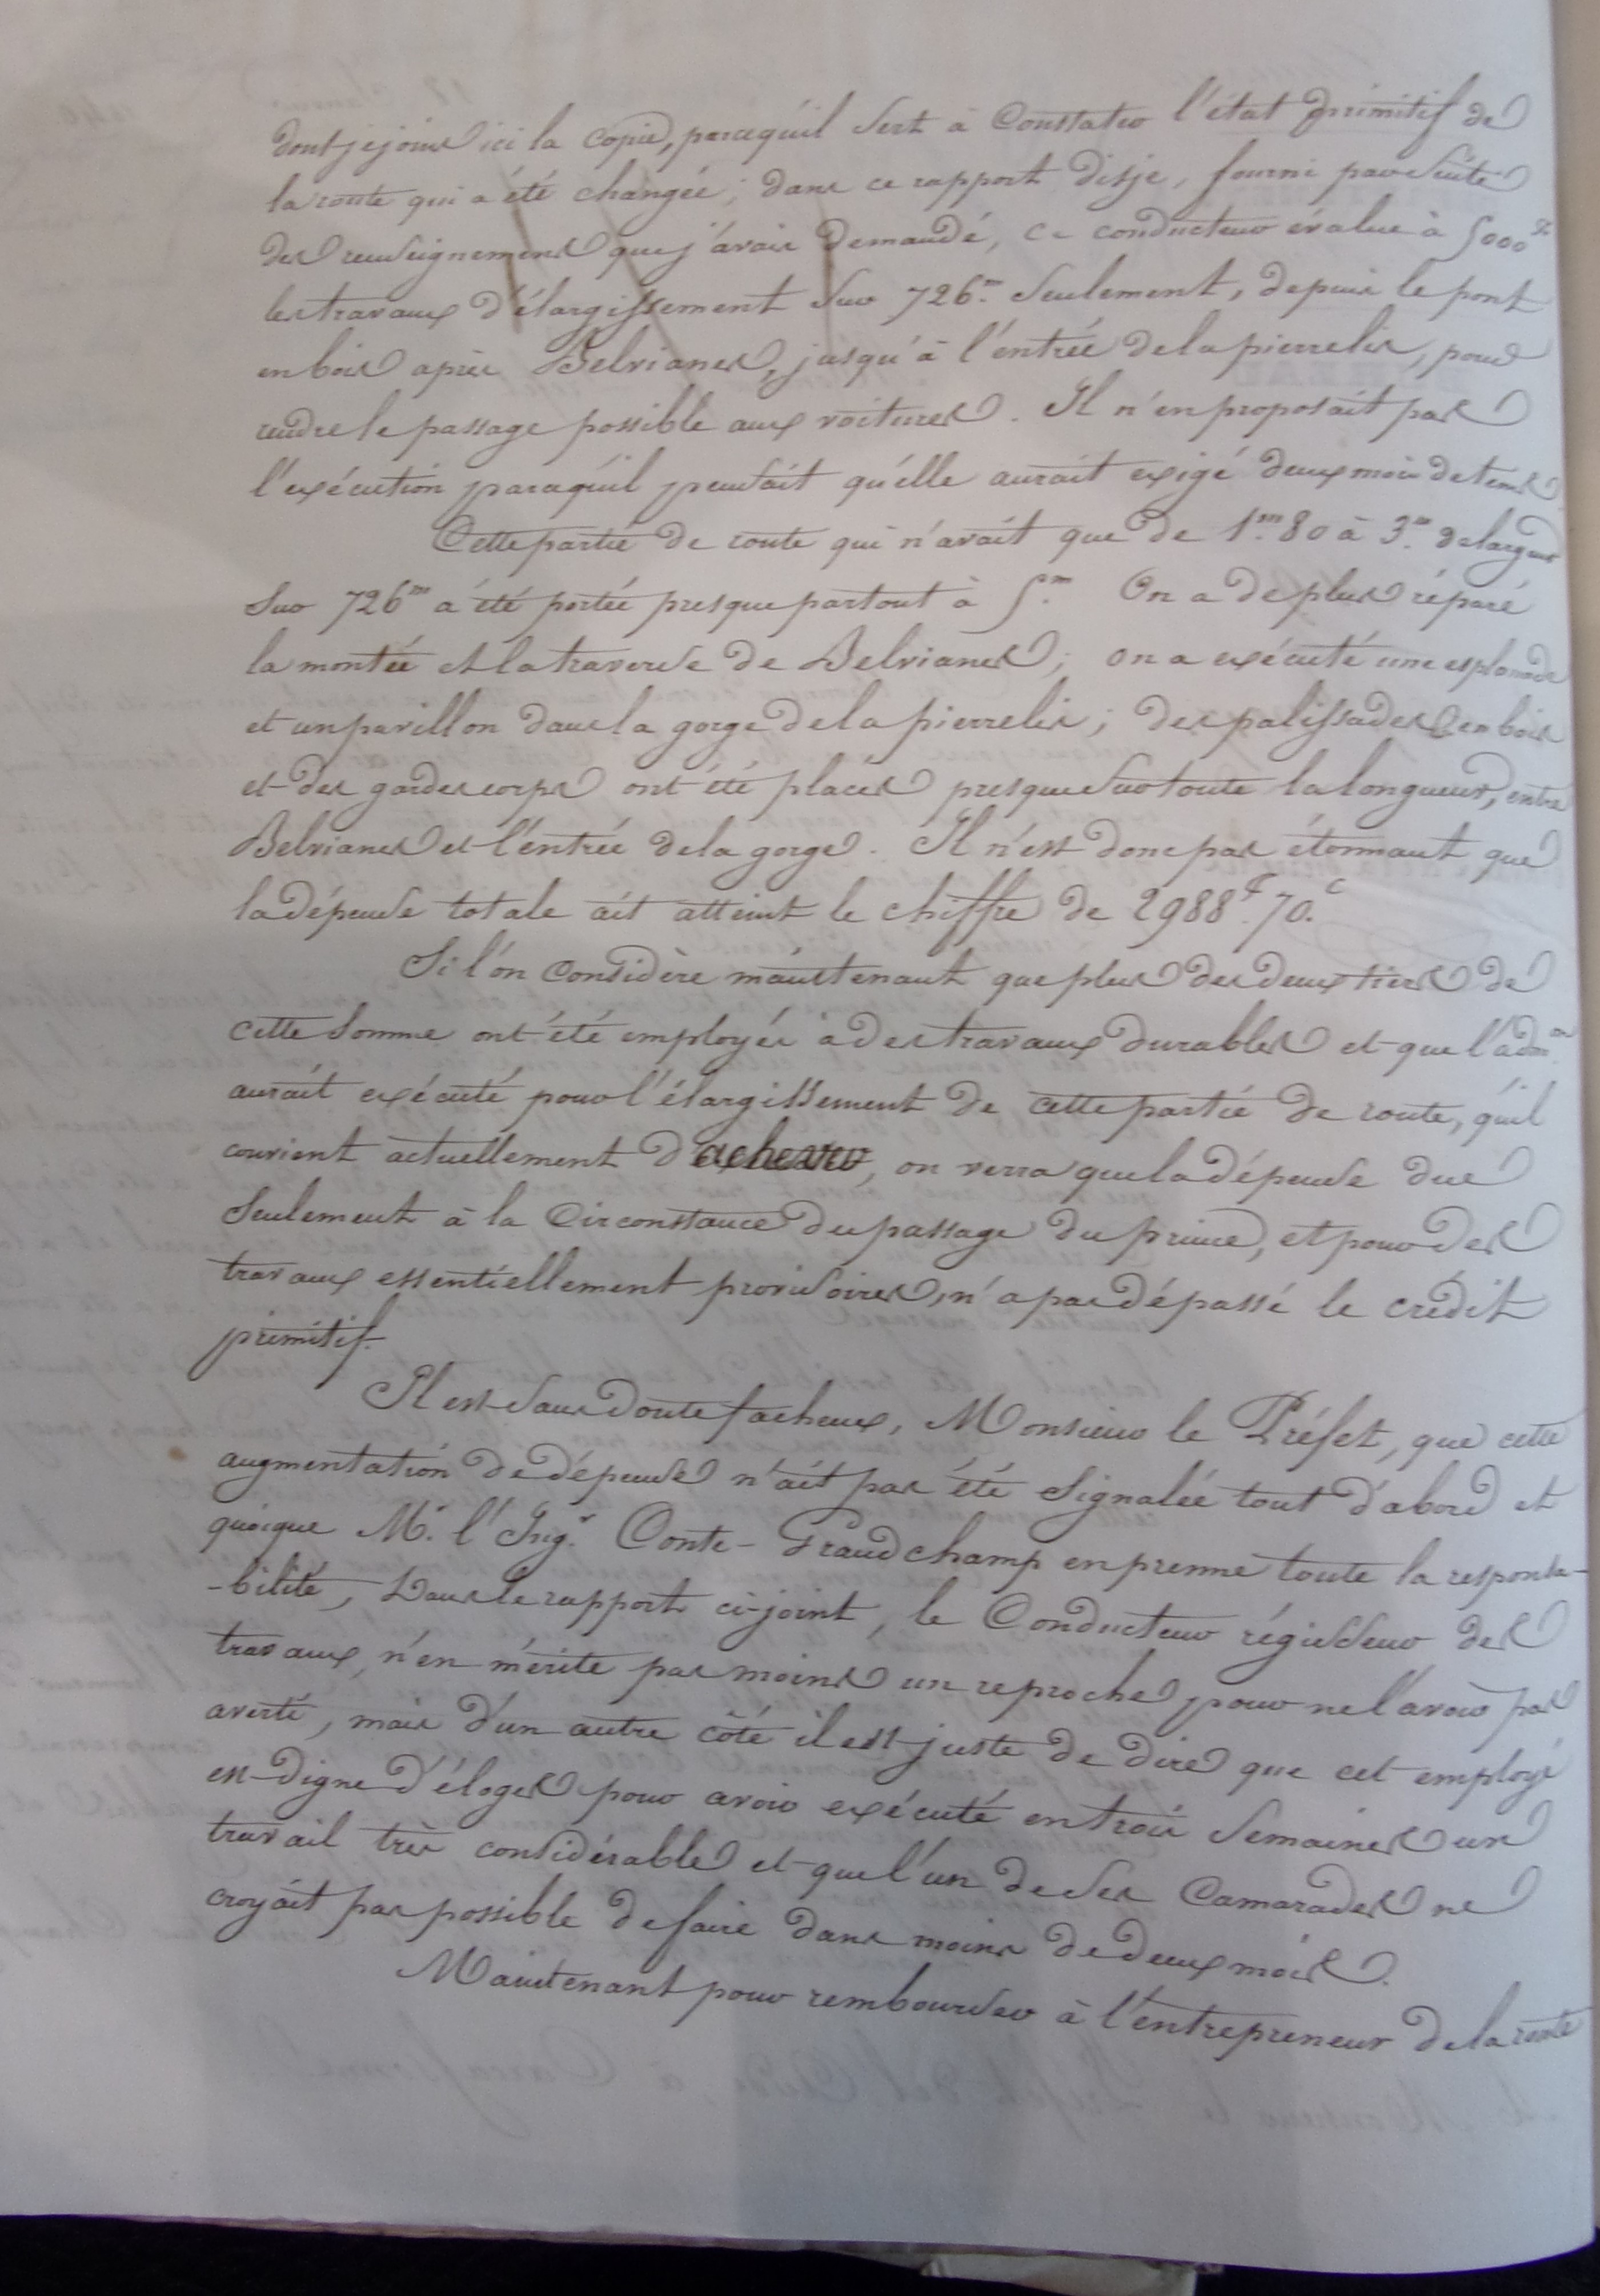 dont je joins ici la copie, parcequ'il sert à Constater l'état primitif de
la route qui a été changée ; dans ce rapport disje, fourni par suite
des renseignemens que j'avais demandé, ce conducteur évalue à 5000f
les travaux d'élargissement sur 726m. seulement, depuis le pont
en bois après Belvianes, jusqu'à l'entrée de la pierrelis, pour
rendre le passage possible aux voitures. Il n'en proposait pas
l'exécution parcequ'il pensait qu'elle aurait exigé deux mois de tems.
Cette partie de route qui n'avait que de 1m.80 à 3m. de largeur
sur 726m a été portée presque partout à 5m. On a de plus réparé
la montée et la traverse de Belvianes ; on a exécuté une esplanade
et un pavillon dans la gorge de la pierrelis ; des palissades en bois
et des gardes corps ont été placés presque sur toute la longueur, entre
Belvianes et l'entrée de la gorge. Il n'est donc pas étonnant que
la dépense totale ait atteint le chiffre de 2988f.70.c
Si l'on Considère maintenant que plus des deux tiers de
cette somme ont été employés à des travaux durables et que l'adm.on
aurait exécuté pour l'élargissement de cette partie de route, qu'il
convient actuellement d'achever, on verra que la dépense due
seulement à la Circonstance du passage du prince, et pour des
travaux essentiellement provisoires, n'a pas dépassé le crédit
primitif.
Il est sans doute facheux, Monsieur le Préfet, que cette
augmentation de dépense n'ait pas été signalée tout d'abord et
quoique Mr. l'Ingr. Conte-Grandchamp en prenne toute la responsa-
-bilité, Dans le rapport ci-joint, le Conducteur régisseur des
travaux, n'en mérite pas moins un reproche pour ne l'avoir pas
averti, mais d'un autre côté il est juste de dire que cet employé
est digne d'éloges pour avoir exécuté en trois semaines un
travail très considérable et que l'un de ses Camarades ne
croyait pas possible de faire dans moins de deux mois.
Maintenant pour rembourser à l'entrepreneur de la route